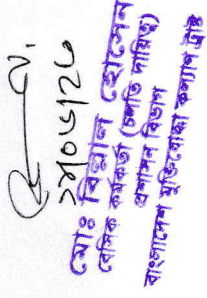 ২৮/০৬/২৬
মোঃ বিল্লাল হোসেন
বেসিক কর্মকর্তা (চলতি দায়িত্ব)
প্রশাসন বিভাগ
বাংলাদেশ মুক্তিযোদ্ধা কল্যাণ ট্রাস্ট